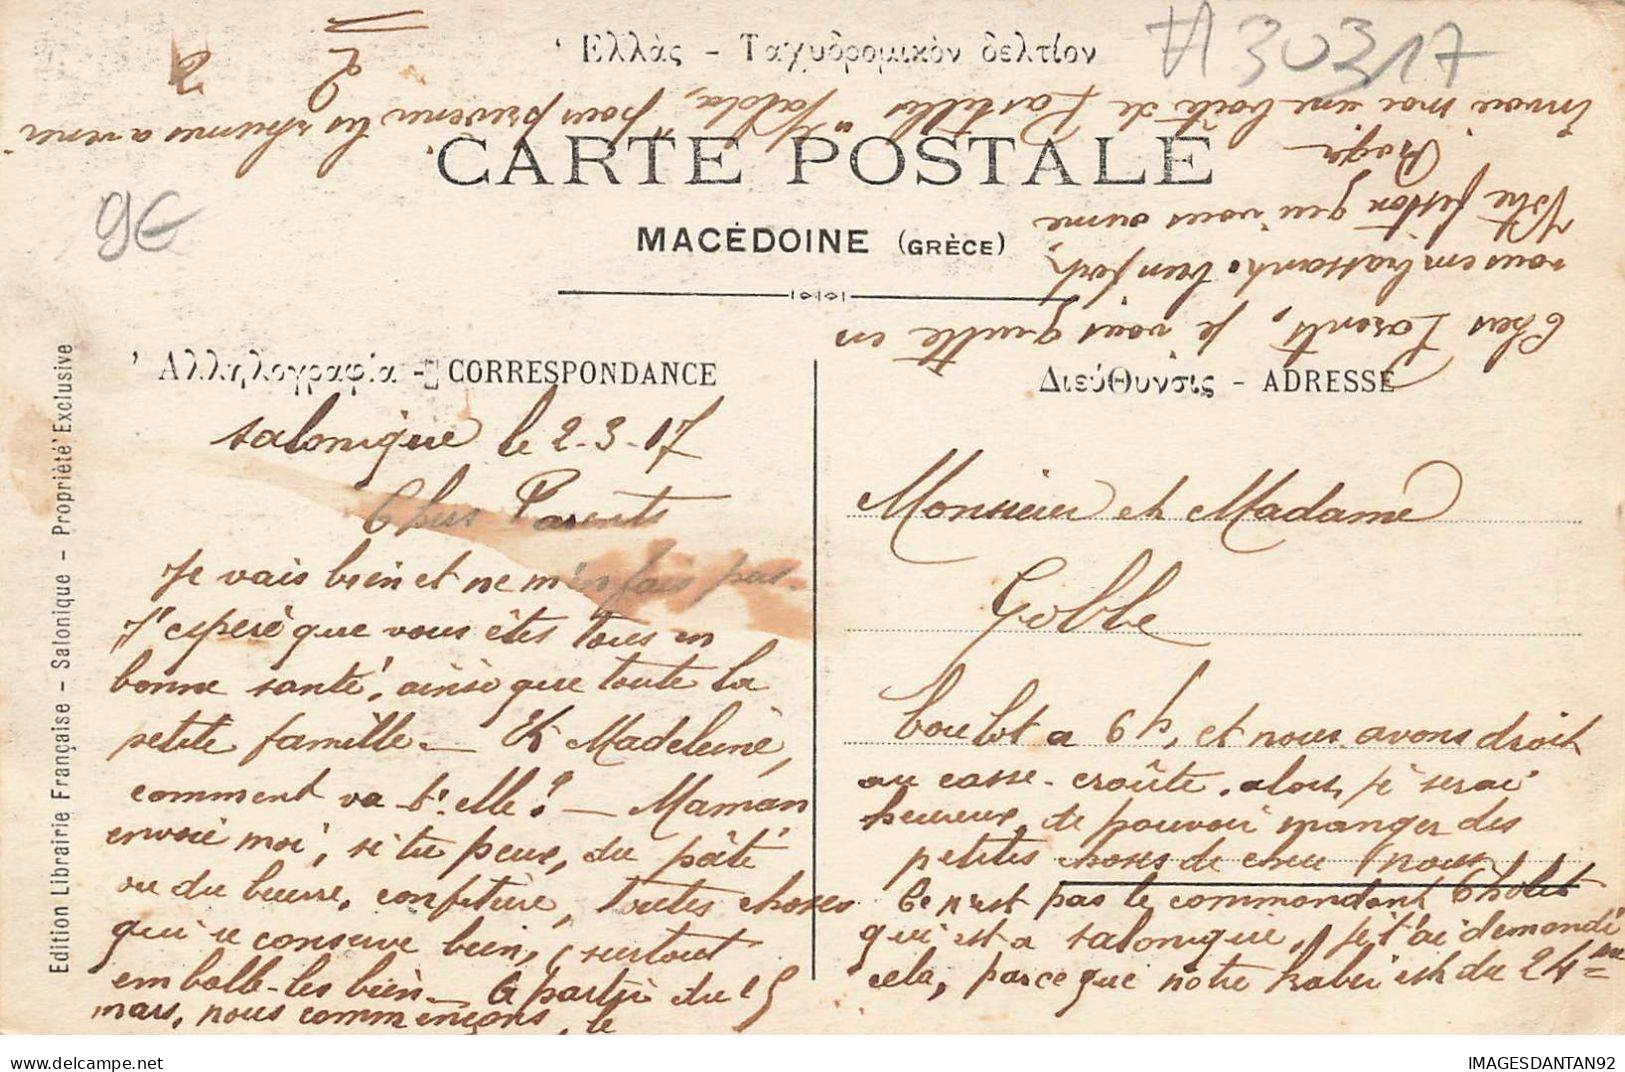 Ἑλλὰς - Ταχυδρομικὸν δελτίον
#30317
CARTE POSTALE
MACÉDOINE (GRÈCE)
9€
Ἀλληλογραφία - CORRESPONDANCE
Διεύθυνσις - ADRESSE
Edition Librairie Française - Salonique - Propriété Exclusive
Salonique le 2-3-17
Chers Parents
Je vais bien et ne m'en fais pas.
J'espère que vous êtes tous en
bonne santé, ainsi que toute la
petite famille. — Et Madeleine,
comment va-t'elle? — Maman
envoie moi, si tu peux, du pâté
ou du beurre, confiture, toutes choses
qui se conserve bien, (surtout
emballe-les bien — A partir du 15
mars, nous commençons, le
Monsieur et Madame
Gobbe
boulot a 6h, et nous avons droit
au casse-croûte, alors, je serai
heureux, de pouvoir manger des
petites choses de cheu (nous)
Ce n'est pas le commandant Cholet
qui est a Salonique, je t'ai demandé
cela, parce que notre kabei est du 24me
Chers Parents, je vous quitte en
vous embrassant bien fort,
Votre fiston qui vous aime
Roger
Envoie moi une boîte de Pastilles "Valda", pour prévenir les rhumes a venir
2